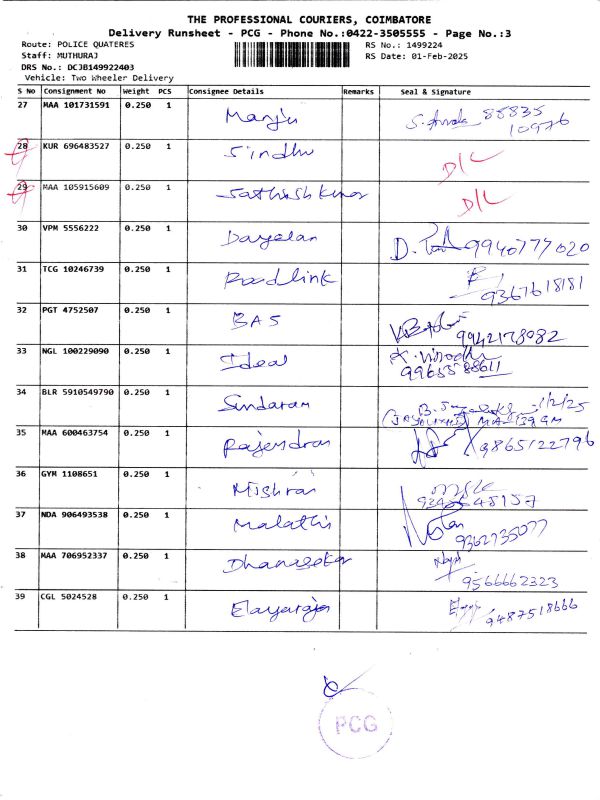 THE PROFESSIONAL COURIERS, COIMBATORE
Delivery Runsheet - PCG - Phone No.:0422-3505555 - Page No.:3
Route: POLICE QUATERES RS No.: 1499224
Staff: MUTHURAJ RS Date: 01-Feb-2025
DRS No.: DCJB149922403
Vehicle: Two Wheeler Delivery
S No Consignment No Weight PCS Consignee Details Remarks Seal & Signature
27 MAA 101731591 0.250 1 Manju 88835
10976
28 KUR 696483527 0.250 1 Sindhu D/L
29 MAA 105915609 0.250 1 Sathish Kumar D/L
30 VPM 5556222 0.250 1 Dayalan D. 9940777020
31 TCG 10246739 0.250 1 Roadlink 9367618181
32 PGT 4752507 0.250 1 BAS 9942178082
33 NGL 100229090 0.250 1 Ideal K. Vinodh
9965588611
34 BLR 5910549790 0.250 1 Sundaram 1/2/25
35 MAA 600463754 0.250 1 Rajendran 9865122796
36 GYM 1108651 0.250 1 Mishraj
37 NDA 906493538 0.250 1 Malathi 9362735077
38 MAA 706952337 0.250 1 Dhanasekar 9566662323
39 CGL 5024528 0.250 1 Elayaraja 9487518666
PCG